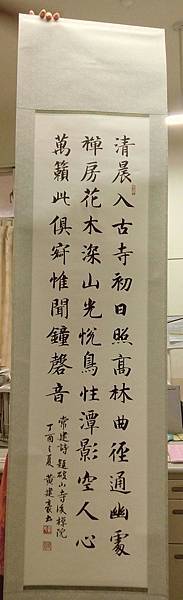 清晨入古寺初日照高林曲徑通幽處
禪房花木深山光悅鳥性潭影空人心
萬籟此俱寂惟聞鐘磬音
常建詩題破山寺後禪院
丁酉之夏黃建豪書